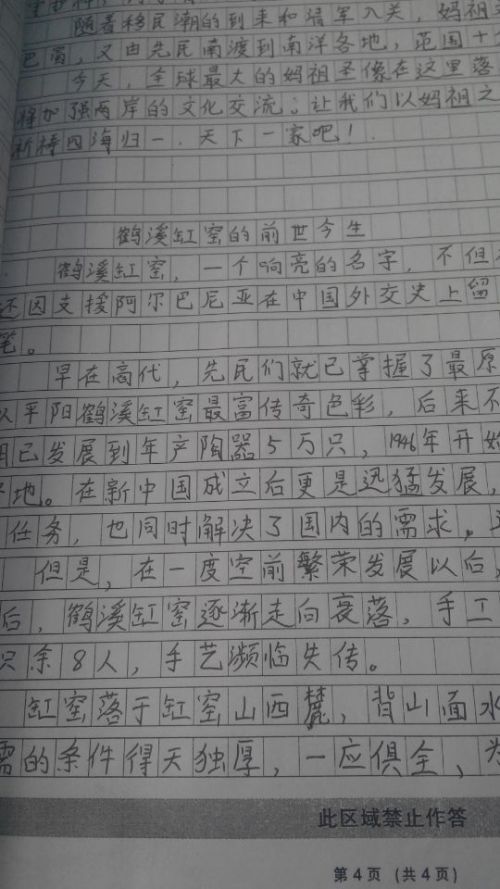 随着移民潮的到来和清军入关，妈祖
巴胃，又由先民南渡到南洋各地，范围十
今天，全球最大的妈祖圣像在这里落
将加强两岸的文化交流；让我们以妈祖之
祈祷四海归一．天下一家吧！
鹤溪缸窑的前世今生
鹤溪缸窑，一个响亮的名字，不但
还因支援阿尔巴尼亚在中国外交史上留
笔。
早在高代，先民们就已掌握了最原
以平阳鹤溪缸窑最富传奇色彩，后来不
已发展到年产陶器5万只，1946年开始
地。在新中国成立后更是迅猛发展，
任务，也同时解决了国内的需求。
但是，在一度空前繁荣发展以后，
后，鹤溪缸窑逐渐走向衰落，手工
只余8人，手艺濒临失传。
缸窑落于缸窑山西麓，背山面水
需的条件得天独厚，一应俱全，为
此区域禁止作答
第4页（共4页）